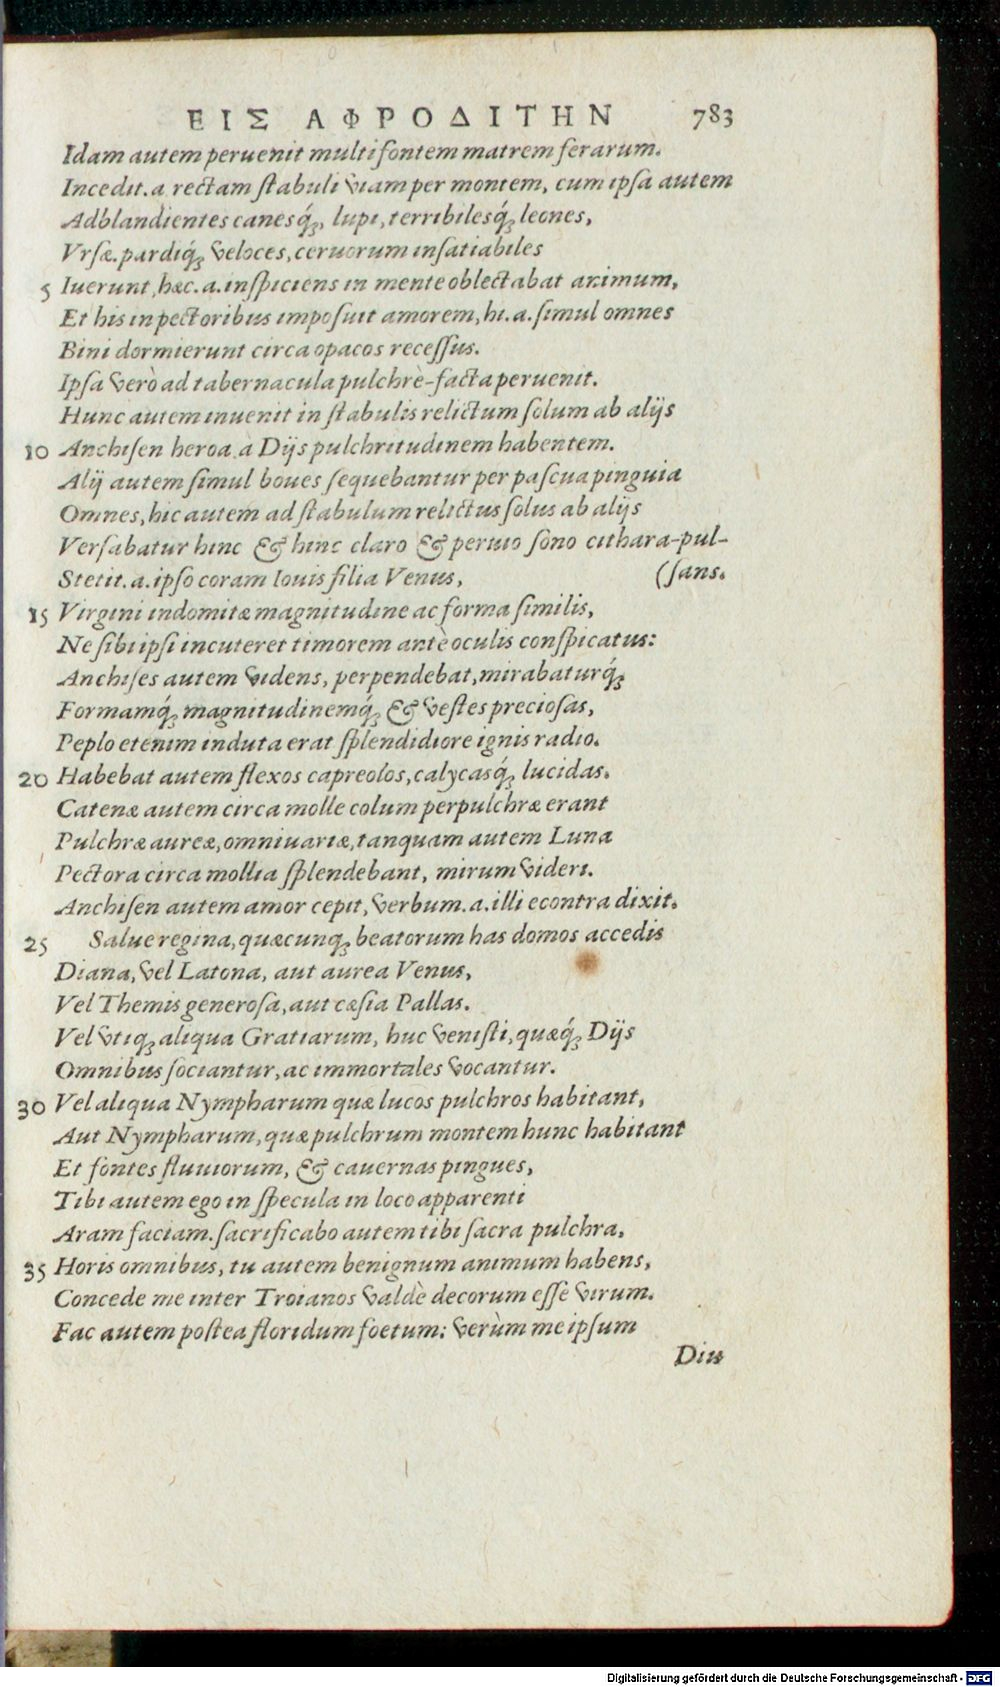 ΕΙΣ ΑΦΡΟΔΙΤΗΝ 783
Idam autem peruenit multifontem matrem ferarum.
Incedit.a rectam ſtabuli viam per montem, cum ipſa autem
Adblandientes canesq́;, lupi, terribilesq́; leones,
Vrſæ.pardiq́; veloces, ceruorum inſatiabiles
5 Iuerunt, hæc.a.inſpiciens in mente oblectabat animum,
Et his in pectoribus impoſuit amorem, hi.a.ſimul omnes
Bini dormierunt circa opacos receſſus.
Ipſa verò ad tabernacula pulchrè-facta peruenit.
Hunc autem inuenit in ſtabulis relictum ſolum ab alijs
10 Anchiſen heroa à Dijs pulchritudinem habentem.
Alij autem ſimul boues ſequebantur per paſcua pinguia
Omnes, hic autem ad ſtabulum relictus ſolus ab alijs
Verſabatur hinc & hinc claro & peruio ſono cithara-pul-
Stetit.a.ipſo coram Iouis filia Venus, (ſans.
15 Virgini indomitæ magnitudine ac forma ſimilis,
Ne ſibi ipſi incuteret timorem antè oculis conſpicatus:
Anchiſes autem videns, perpendebat, mirabaturq́;
Formamq́; magnitudinemq́; & veſtes precioſas,
Peplo etenim induta erat ſplendidiore ignis radio.
20 Habebat autem flexos capreolos, calycasq́; lucidas.
Catenæ autem circa molle colum perpulchræ erant
Pulchræ aureæ, omniuariæ, tanquam autem Luna
Pectora circa mollia ſplendebant, mirum videri.
Anchiſen autem amor cepit, verbum.a.illi econtra dixit.
25 Salue regina, quæcunq; beatorum has domos accedis
Diana, vel Latona, aut aurea Venus,
Vel Themis generoſa, aut cæſia Pallas.
Vel vtiq; aliqua Gratiarum, huc veniſti, quæq́; Dijs
Omnibus ſociantur, ac immortales vocantur.
30 Vel aliqua Nympharum quæ lucos pulchros habitant,
Aut Nympharum, quæ pulchrum montem hunc habitant
Et fontes fluuiorum, & cauernas pingues,
Tibi autem ego in ſpecula in loco apparenti
Aram faciam.ſacrificabo autem tibi ſacra pulchra,
35 Horis omnibus, tu autem benignum animum habens,
Concede me inter Troianos valdè decorum eſſe virum.
Fac autem poſtea floridum foetum: verùm me ipſum
Diu
Digitalisierung gefördert durch die Deutsche Forschungsgemeinschaft - DFG